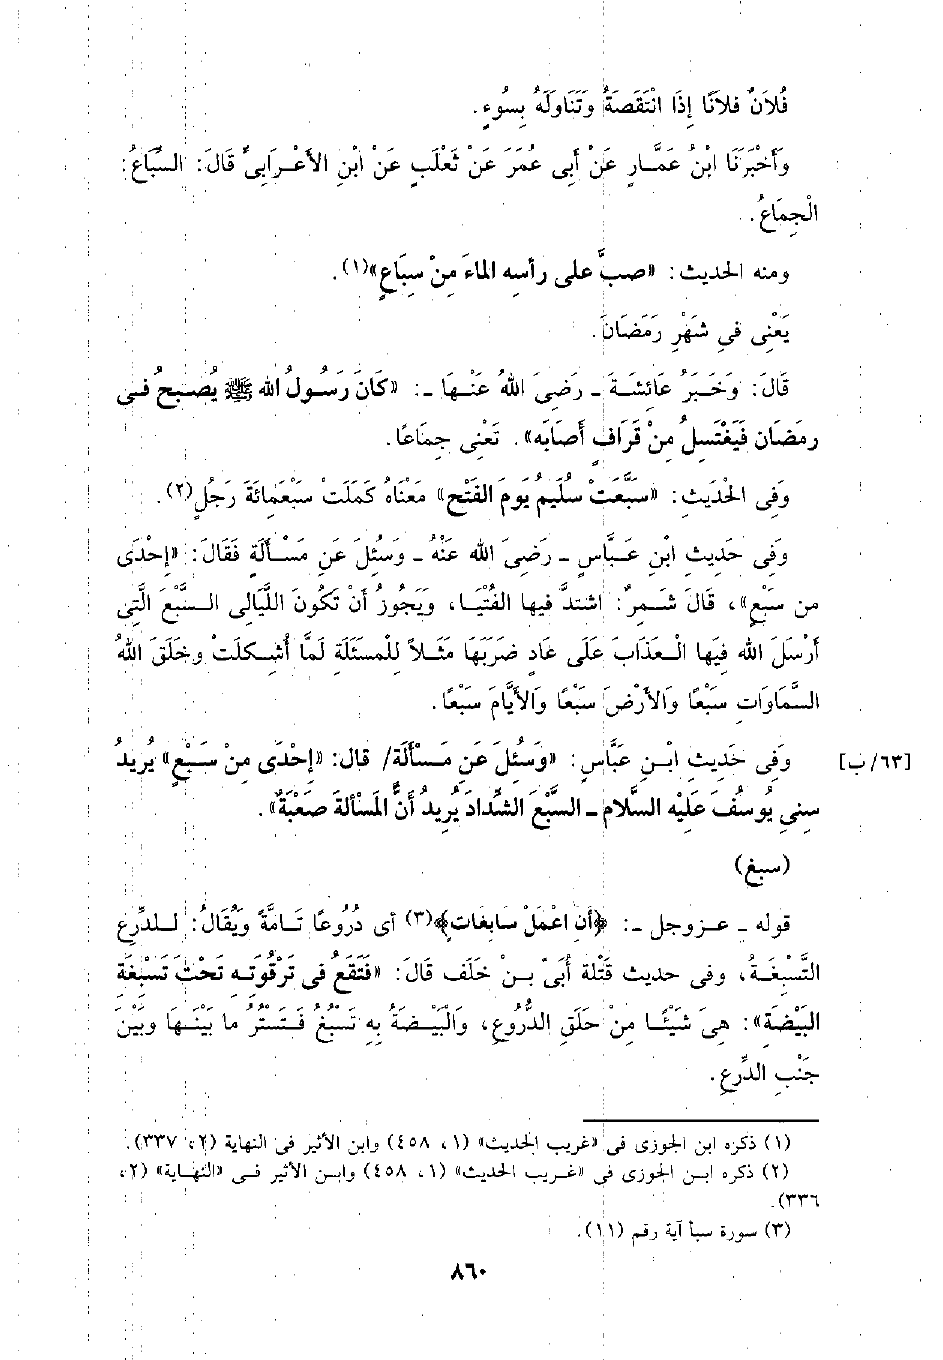 فُلاَنٌ فلانًا إِذَا انْتَقَصَهُ وَتَنَاوَلَهُ بِسُوءٍ.
وَأَخْبَرَنَا ابْنُ عَمَّارٍ عَنْ أَبِى عُمَرَ عَنْ ثَعْلَبٍ عَنْ ابْنِ الأَعْرَابِىِّ قَالَ: السِّبَاعُ:
الْجِمَاعُ.
ومنه الحديث: «صبَّ على رأسِه الماءَ مِنْ سِبَاعٍ»(١).
يَعْنِى فى شَهْرِ رَمَضَانَ.
قَالَ: وَخَبَرُ عَائِشَةَ ـ رَضِىَ اللهُ عَنْهَا ـ: «كَانَ رَسُولُ الله ﷺ يُصْبِحُ فى
رمضَان فَيَغْتَسِلُ مِنْ قِرَافٍ أَصَابَه». تَعْنِى جِمَاعًا.
وَفِى الْحَدِيثِ: «سَبَّعَتْ سُلَيمُ يَومَ الفَتْحِ» مَعْنَاهُ كَمَلَتْ سَبْعَمِائَةَ رَجُلٍ(٢).
وَفِى حَدِيثِ ابْنِ عَبَّاسٍ ـ رَضِىَ الله عَنْهُ ـ وَسُئِلَ عَنِ مَسْأَلَةٍ فَقَالَ: «إِحْدَى
مِن سَبْعٍ»، قَالَ شَمِرٌ: اشتدَّ فيها الفُتْيَا، وَيَجُوزُ أَنْ تَكُونَ اللَّيَالِى السَّبْعَ الَّتِى
أَرْسَلَ الله فِيَها الْعَذَابَ عَلَى عَادٍ ضَرَبَهَا مَثَلاً لِلْمسْئَلَةِ لَمَّا أُشكلَتْ وخَلَقَ اللهُ
السَّمَاوَاتِ سَبْعًا وَالأرْضَ سَبْعًا وَالأَيَّامَ سَبْعًا.
وَفِى حَدِيثِ ابْنِ عَبَّاسٍ: «وَسُئِلَ عَن مَسْأَلَة/ قال: «إحْدَى مِنْ سَبْعٍ» يُريدُ [٦٣/ب]
سِنِي يُوسُفَ عَلَيْه السَّلام ـ السَّبْعَ الشِّدادَ يُريدُ أنَّ المَسْألةَ صَعْبَةٌ».
(سبغ)
قوله ـ عزوجل ـ: ﴿أَن اعْمَلْ سَابِغَات﴾(٣) أى دُرُوعًا تَامَّةً وَيُقَالُ: للدِّرْعِ
التَّسْبِغَةُ، وفى حديث قَتْلَة أُبَىّ بْنِ خَلَف قَالَ: «فَتَقَعُ فى تَرْقُوَتِه تَحْتَ تَسْبِغَة
البَيْضَة»: هِىَ شَيْئًا مِنْ حَلَقِ الدُّرُوعِ، وَالْبَيْضَةُ بِهِ تَسْبُغُ فَتَسْتُرُ ما بَيْنَها وَبَيْنَ
جَنْبِ الدِّرْعِ.
(١) ذكره ابن الجوزى فى «غريب الحديث» (١، ٤٥٨) وابن الأثير فى النهاية (٢، ٣٣٧).
(٢) ذكره ابن الجوزى فى «غريب الحديث» (١، ٤٥٨) وابن الأثير فى «النهاية» (٢،
٣٣٦).
(٣) سورة سبأ آية رقم (١١).
٨٦٠